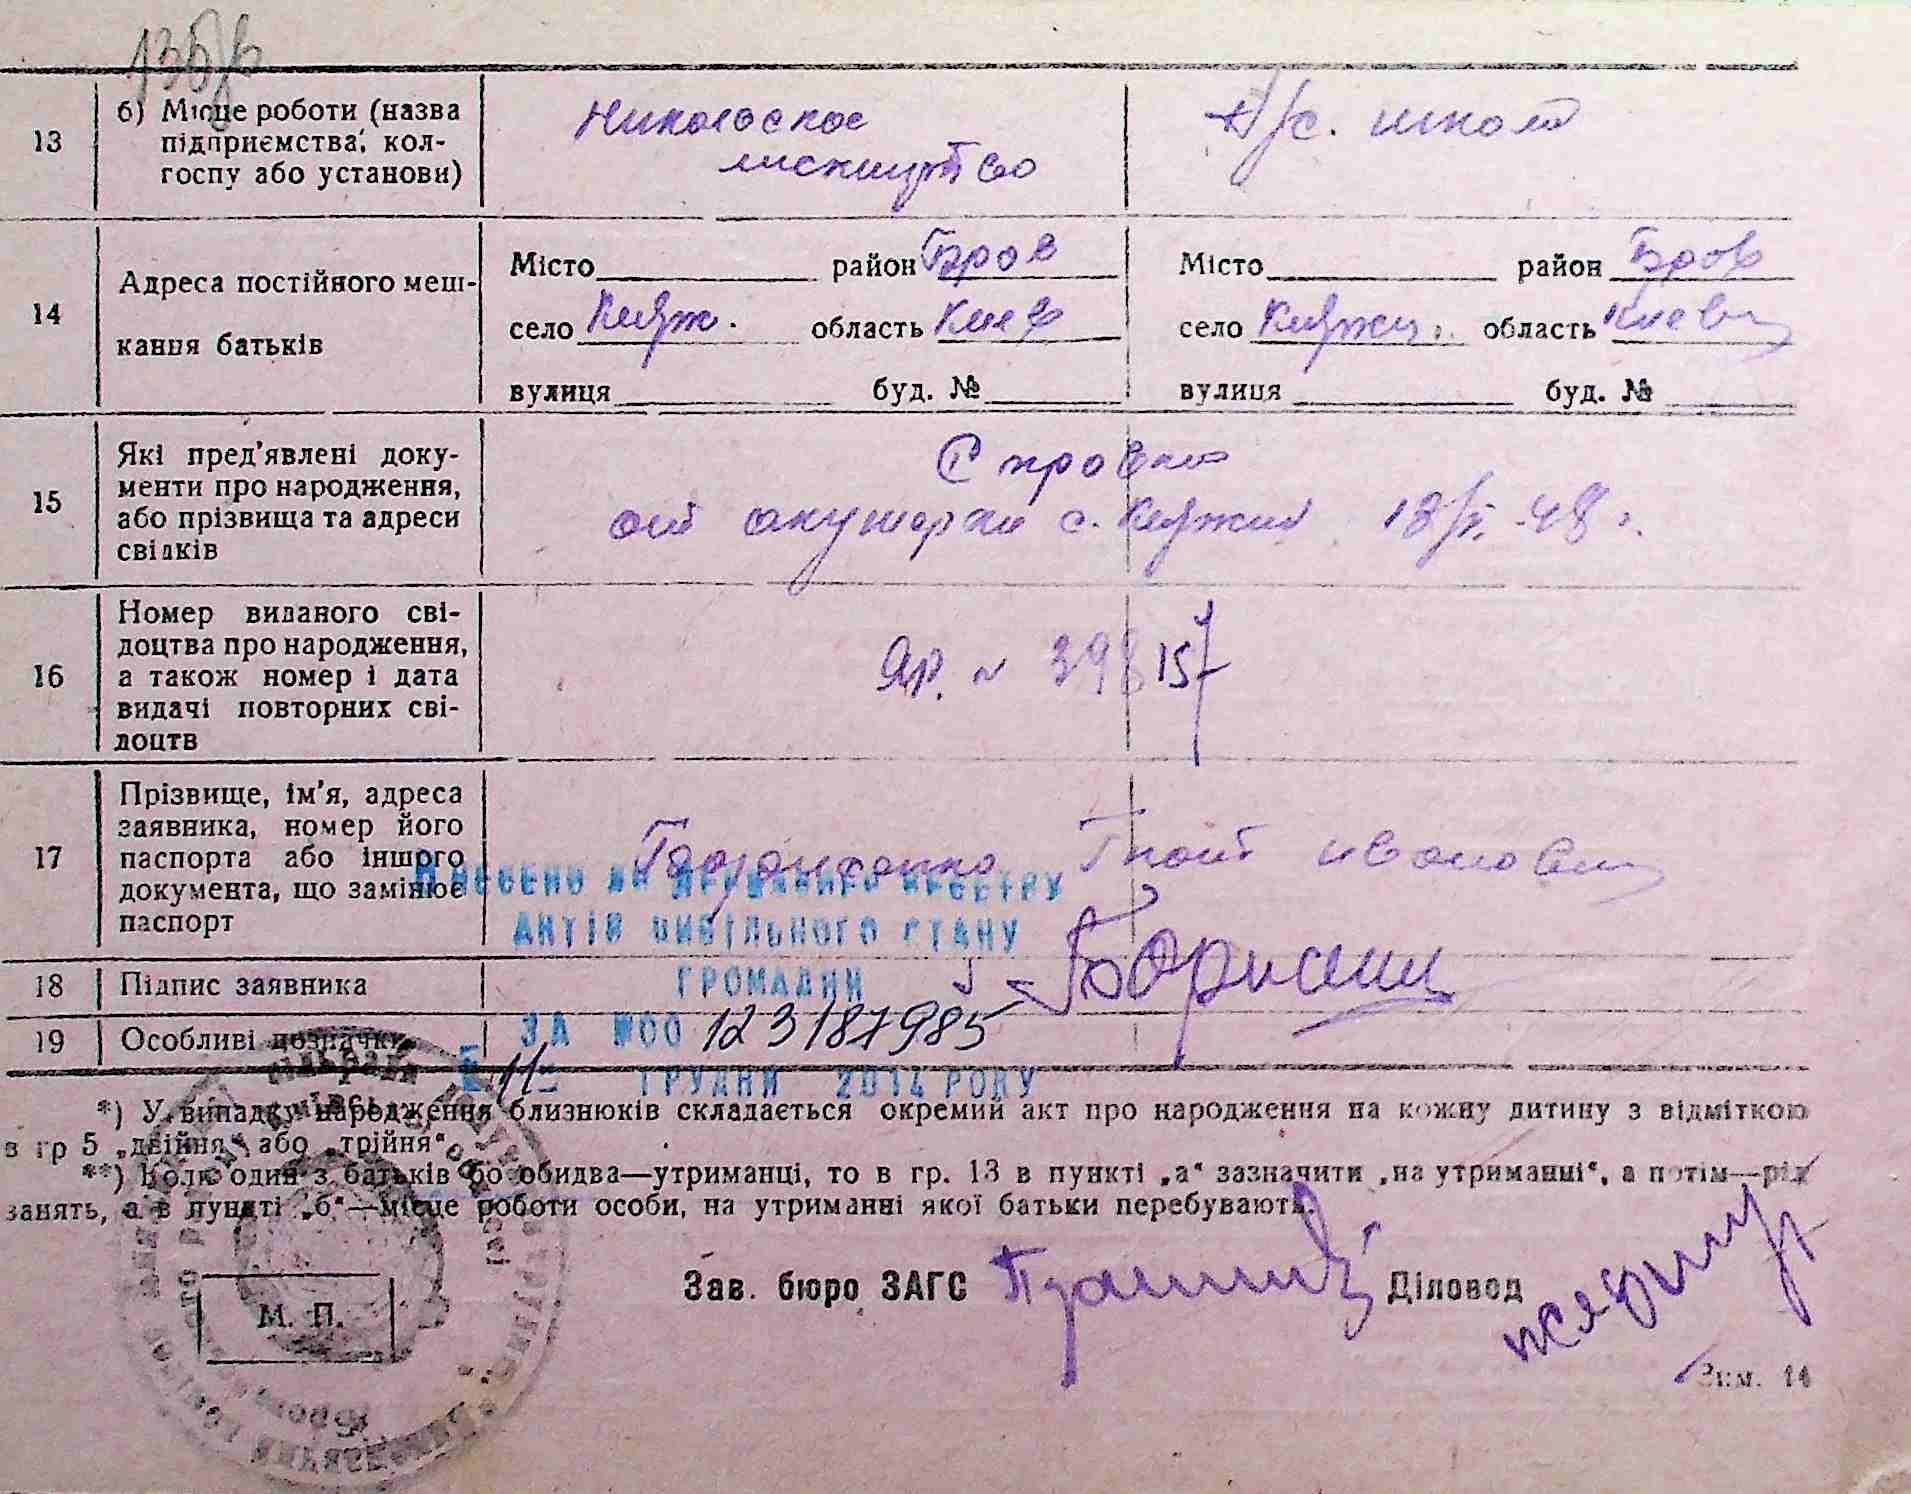 13 б) Місце роботи (назва
підприємства, кол-
госпу або установи)
Никольское
лесничество
с. школа
14 Адреса постійного меш-
кання батьків
Місто район Бров
село Княж. область Киев
вулиця буд. №
Місто район Бров
село Княжи. область Киевск
вулиця буд. №
15 Які пред'явлені доку-
менти про народження,
або прізвища та адреси
свідків
Справка
от акушерки с. Княжичи 18/V. 48 г.
16 Номер виданого сві-
доцтва про народження,
а також номер і дата
видачі повторних сві-
доцтв
ЯР. № 398157
17 Прізвище, ім'я, адреса
заявника, номер його
паспорта або іншого
документа, що замінює
паспорт
Игнат Иванович
ВНЕСЕНО ДО ДЕРЖАВНОГО РЕЄСТРУ
АКТІВ ЦИВІЛЬНОГО СТАНУ
ГРОМАДЯН
18 Підпис заявника
19 Особливі позначки
ЗА №00 123187985
11 ГРУДНЯ 2014 РОКУ
*) У випадку народження близнюків складається окремий акт про народження на кожну дитину з відміткою
в гр 5 „двійня“ або „трійня“
**) Коли один з батьків бо обидва—утриманці, то в гр. 13 в пункті „а“ зазначити „на утриманні“, а потім—рід
занять, а в пункті „б“—місце роботи особи, на утриманні якої батьки перебувають.
Зав. бюро ЗАГС Діловод
М. П.
Зам. 14